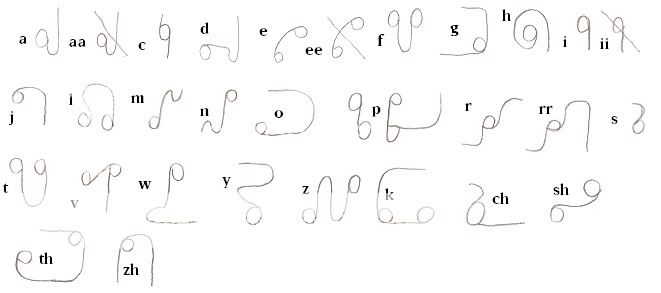 a aa c d e ee f g h i ii
j l m n o p r rr s
t v w y z k ch sh
th zh